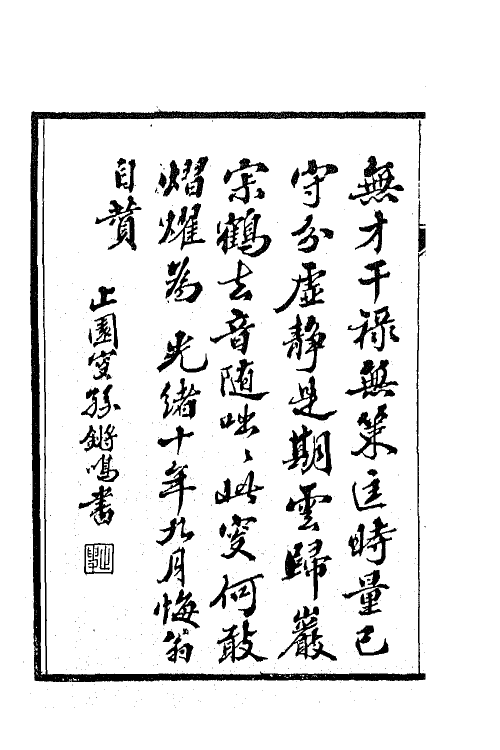 無才干祿無策匡時量己
守分虛靜是期雲歸巖
宗鶴去音隨咄〻此叟何敢
熠燿為 光緒十年九月悔翁
自贊
止園叟孫鏘鳴書